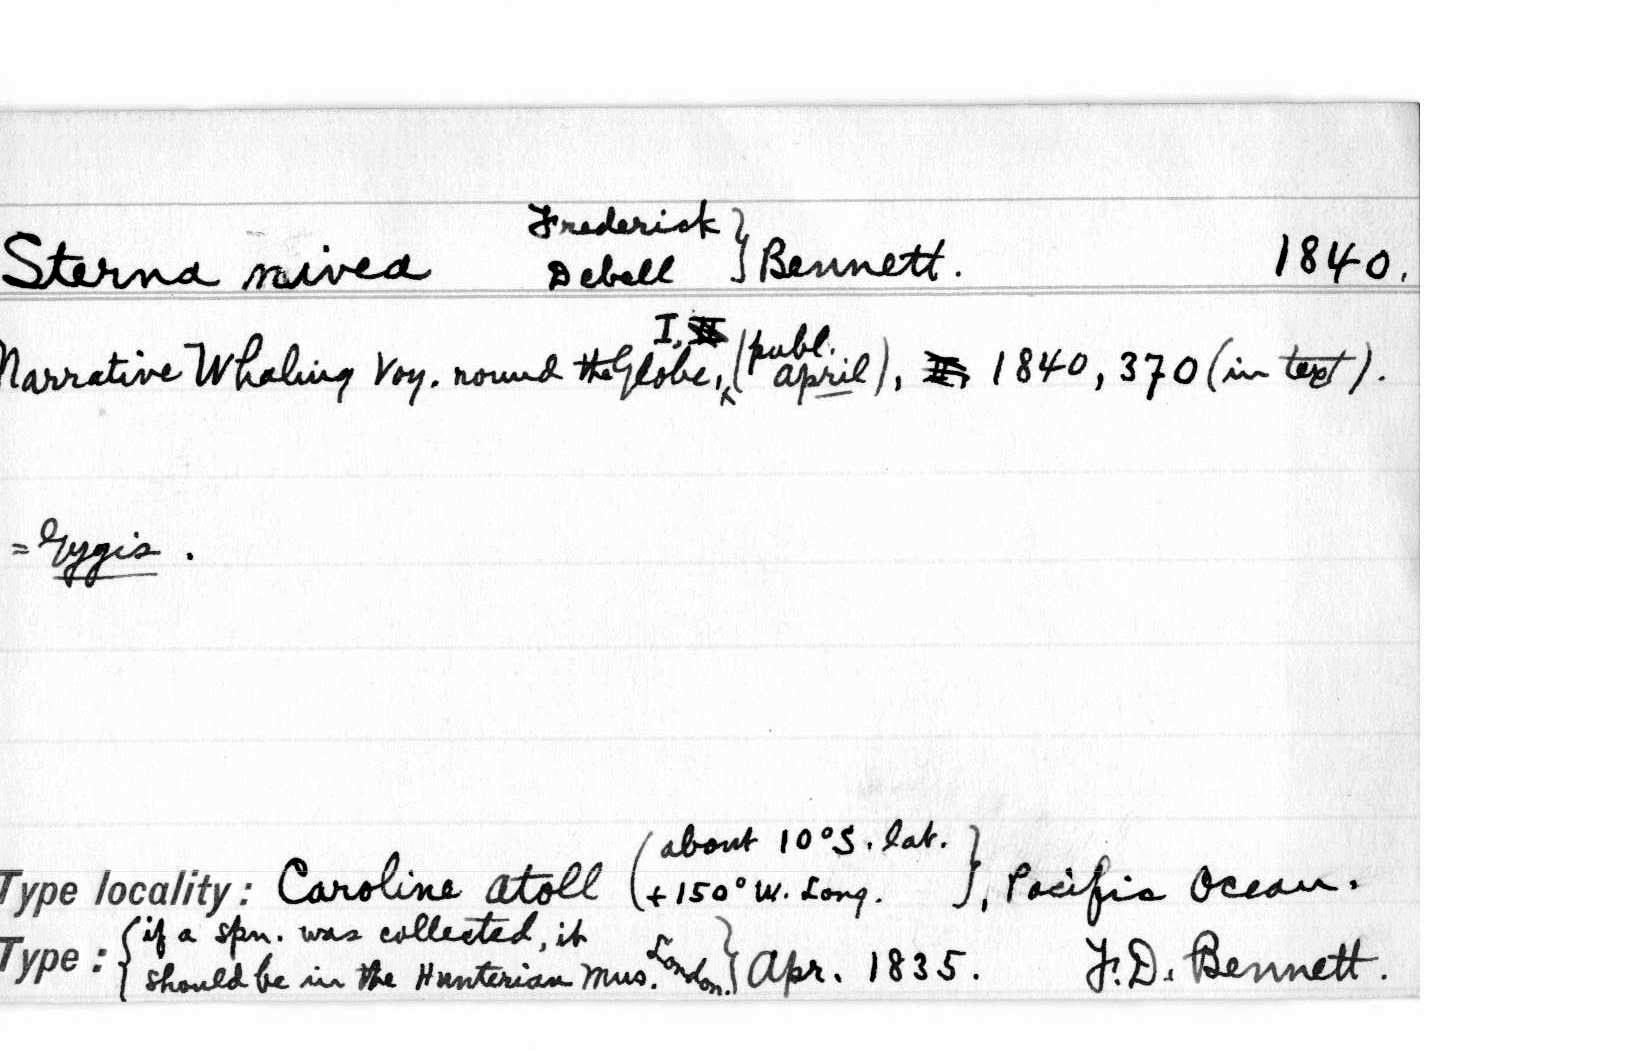 Sterna nivea Frederick Debell } Bennett. 1840.
Narrative Whaling Voy. round the Globe, I, (publ. April), 1840, 370 (in text).
= Gygis.
Type locality: Caroline atoll (about 10° S. lat. + 150° W. Long.), Pacific Ocean.
Type: {if a spn. was collected, it should be in the Hunterian Mus. London.} Apr. 1835. F. D. Bennett.